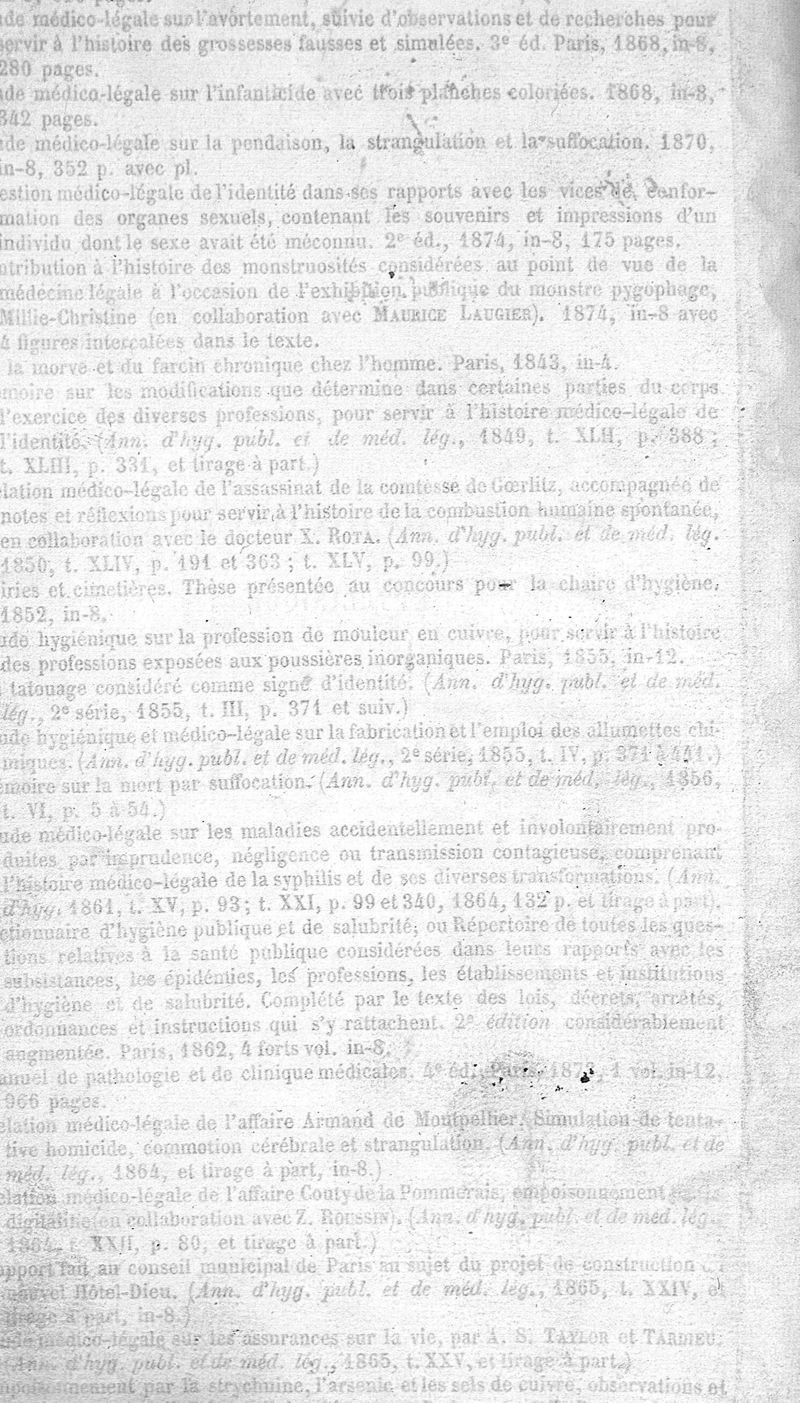 ude médico-légale sur l'avortement, suivie d'observations et de recherches pour
servir à l'histoire des grossesses fausses et simulées. 3e éd. Paris, 1868, in-8,
280 pages.
ude médico-légale sur l'infanticide avec trois planches coloriées. 1868, in-8,
342 pages.
ude médico-légale sur la pendaison, la strangulation et la suffocation. 1870,
in-8, 352 p. avec pl.
estion médico-légale de l'identité dans ses rapports avec les vices de confor-
mation des organes sexuels, contenant les souvenirs et impressions d'un
individu dont le sexe avait été méconnu. 2e éd., 1874, in-8, 175 pages.
ntribution à l'histoire des monstruosités considérées au point de vue de la
médecine légale à l'occasion de l'exhibition publique du monstre pygophage,
Millie-Christine (en collaboration avec MAURICE LAUGIER). 1874, in-8 avec
4 figures intercalées dans le texte.
la morve et du farcin chronique chez l'homme. Paris, 1843, in-4.
emoire sur les modifications que détermine dans certaines parties du corps
l'exercice des diverses professions, pour servir à l'histoire médico-légale de
l'identité. (Ann. d'hyg. publ. et de méd. lég., 1849, t. XLII, p. 388 ;
t. XLIII, p. 331, et tirage à part.)
elation médico-légale de l'assassinat de la comtesse de Gœrlitz, accompagnée de
notes et réflexions pour servir à l'histoire de la combustion humaine spontanée,
en collaboration avec le docteur X. ROTA. (Ann. d'hyg. publ. et de méd. lég.
1850, t. XLIV, p. 191 et 363 ; t. XLV, p. 99.)
iries et cimetières. Thèse présentée au concours pour la chaire d'hygiène.
1852, in-8.
ude hygiénique sur la profession de mouleur en cuivre, pour servir à l'histoire
des professions exposées aux poussières inorganiques. Paris, 1855, in-12.
tatouage considéré comme signe d'identité. (Ann. d'hyg. publ. et de méd.
lég., 2e série, 1855, t. III, p. 371 et suiv.)
ude hygiénique et médico-légale sur la fabrication et l'emploi des allumettes chi-
miques. (Ann. d'hyg. publ. et de méd. lég., 2e série, 1855, t. IV, p. 371 à 441.)
émoire sur la mort par suffocation. (Ann. d'hyg. publ. et de méd. lég., 1856,
t. VI, p. 5 à 54.)
ude médico-légale sur les maladies accidentellement et involontairement pro-
duites par imprudence, négligence ou transmission contagieuse, comprenant
l'histoire médico-légale de la syphilis et de ses diverses transformations. (Ann.
d'hyg. 1861, t. XV, p. 93; t. XXI, p. 99 et 340, 1864, 132 p. et tirage à part).
ctionnaire d'hygiène publique et de salubrité, ou Répertoire de toutes les ques-
tions relatives à la santé publique considérées dans leurs rapports avec les
subsistances, les épidémies, les professions, les établissements et institutions
d'hygiène et de salubrité. Complété par le texte des lois, décrets, arrêtés,
ordonnances et instructions qui s'y rattachent. 2e édition considérablement
augmentée. Paris, 1862, 4 forts vol. in-8.
anuel de pathologie et de clinique médicales. 4e éd. Paris, 1873, 1 vol. in-12,
966 pages.
elation médico-légale de l'affaire Armand de Montpellier. Simulation de tenta-
tive homicide, commotion cérébrale et strangulation. (Ann. d'hyg. publ. et de
méd. lég., 1864, et tirage à part, in-8.)
elation médico-légale de l'affaire Couty de la Pommerais, empoisonnement par la
digitaline (en collaboration avec Z. ROUSSIN). (Ann. d'hyg. publ. et de méd. lég.
1864, t. XXII, p. 80, et tirage à part.)
apport fait au conseil municipal de Paris au sujet du projet de construction du
nouvel Hôtel-Dieu. (Ann. d'hyg. publ. et de méd. lég., 1865, t. XXIV, et
tirage à part, in-8.)
ude médico-légale sur les assurances sur la vie, par A. S. TAYLOR et TARDIEU.
(Ann. d'hyg. publ. et de méd. lég., 1865, t. XXV, et tirage à part.)
mpoisonnement par la strychnine, l'arsenic et les sels de cuivre, observations et